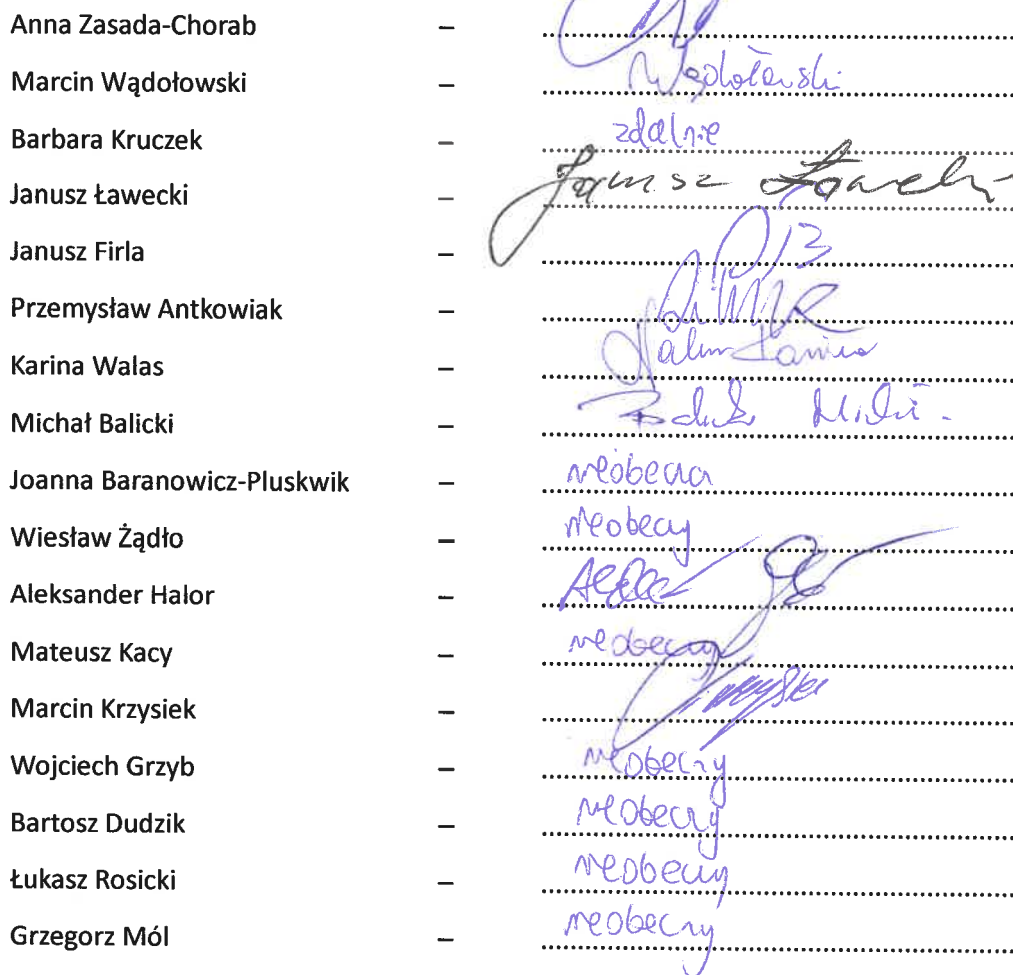 Anna Zasada-Chorab –
Marcin Wądołowski – Wądołowski
Barbara Kruczek – zdalnie
Janusz Ławecki – Janusz Ławecki
Janusz Firla –
Przemysław Antkowiak –
Karina Walas – Walas Karina
Michał Balicki –
Joanna Baranowicz-Pluskwik – nieobecna
Wiesław Żądło – nieobecny
Aleksander Halor –
Mateusz Kacy – nieobecny
Marcin Krzysiek –
Wojciech Grzyb – nieobecny
Bartosz Dudzik – nieobecny
Łukasz Rosicki – nieobecny
Grzegorz Mól – nieobecny